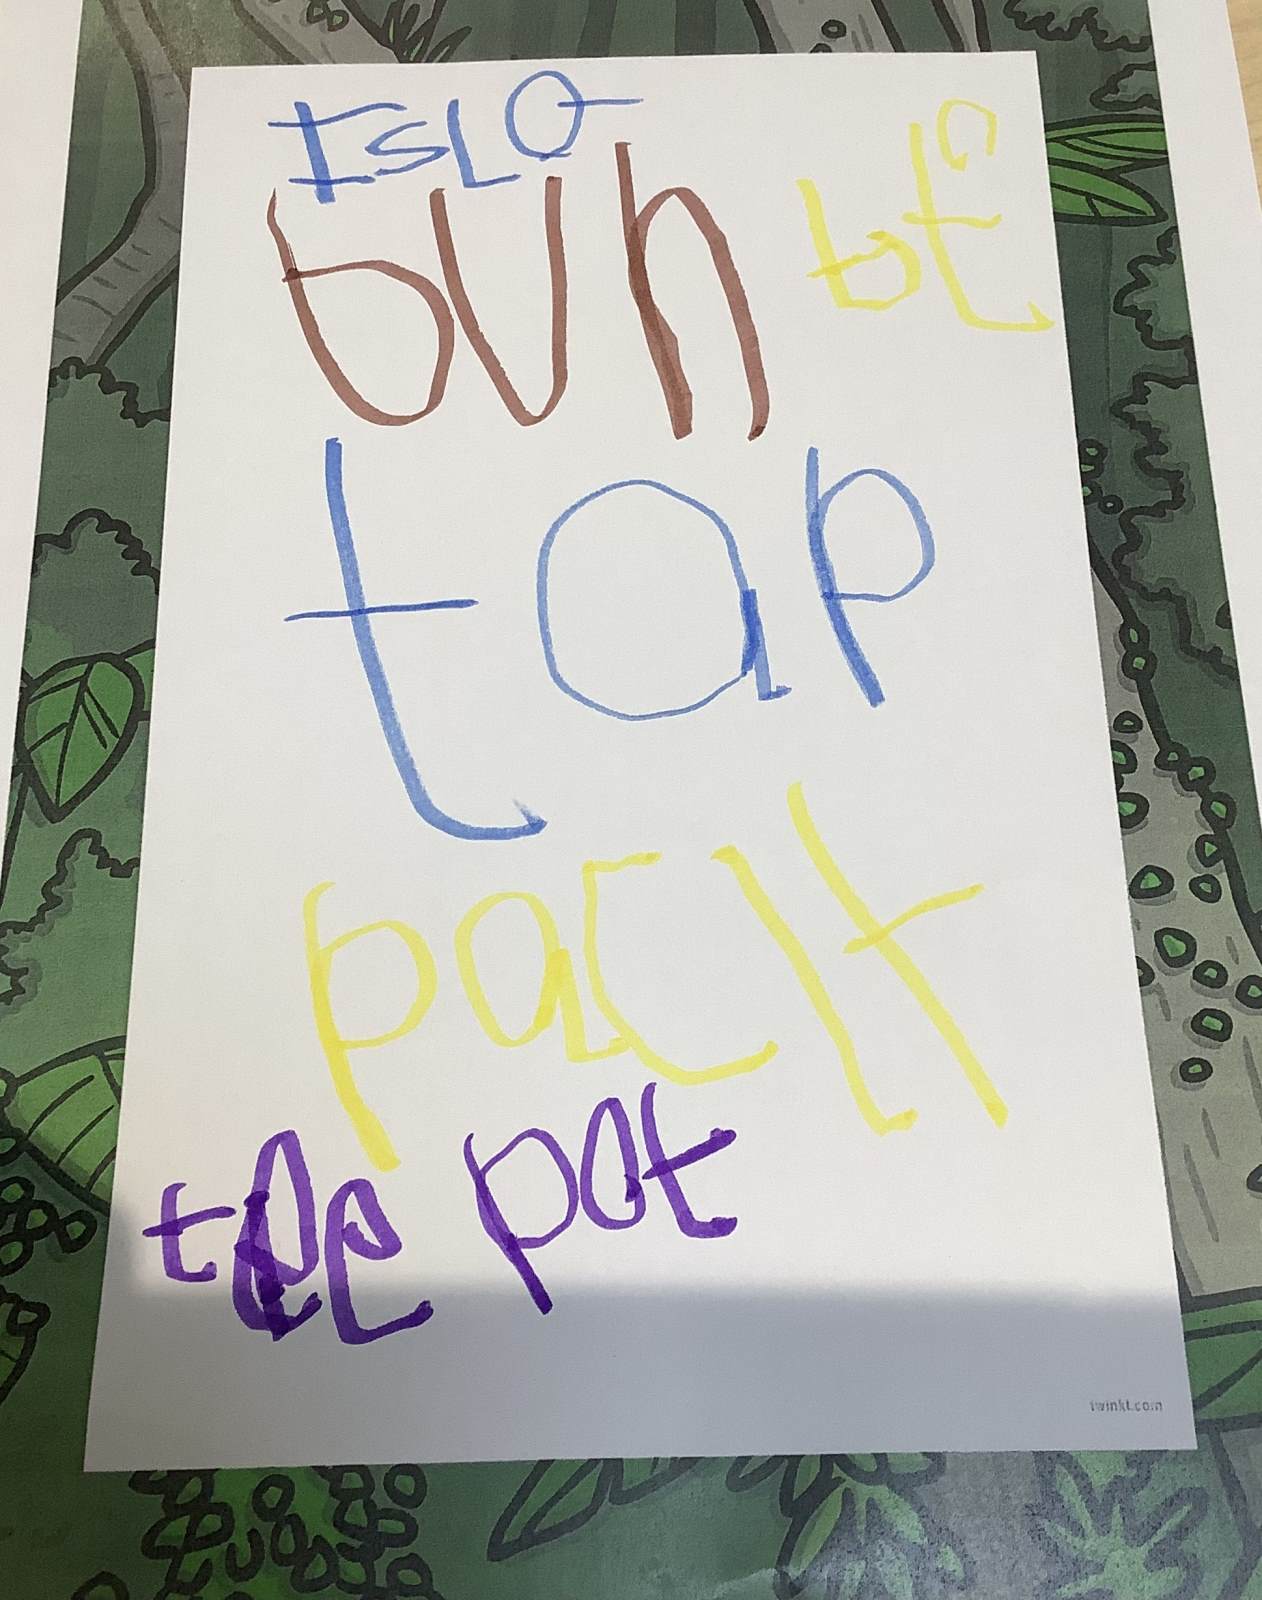 ISLO
bun
tap
paclt
tee pot
twinkl.com